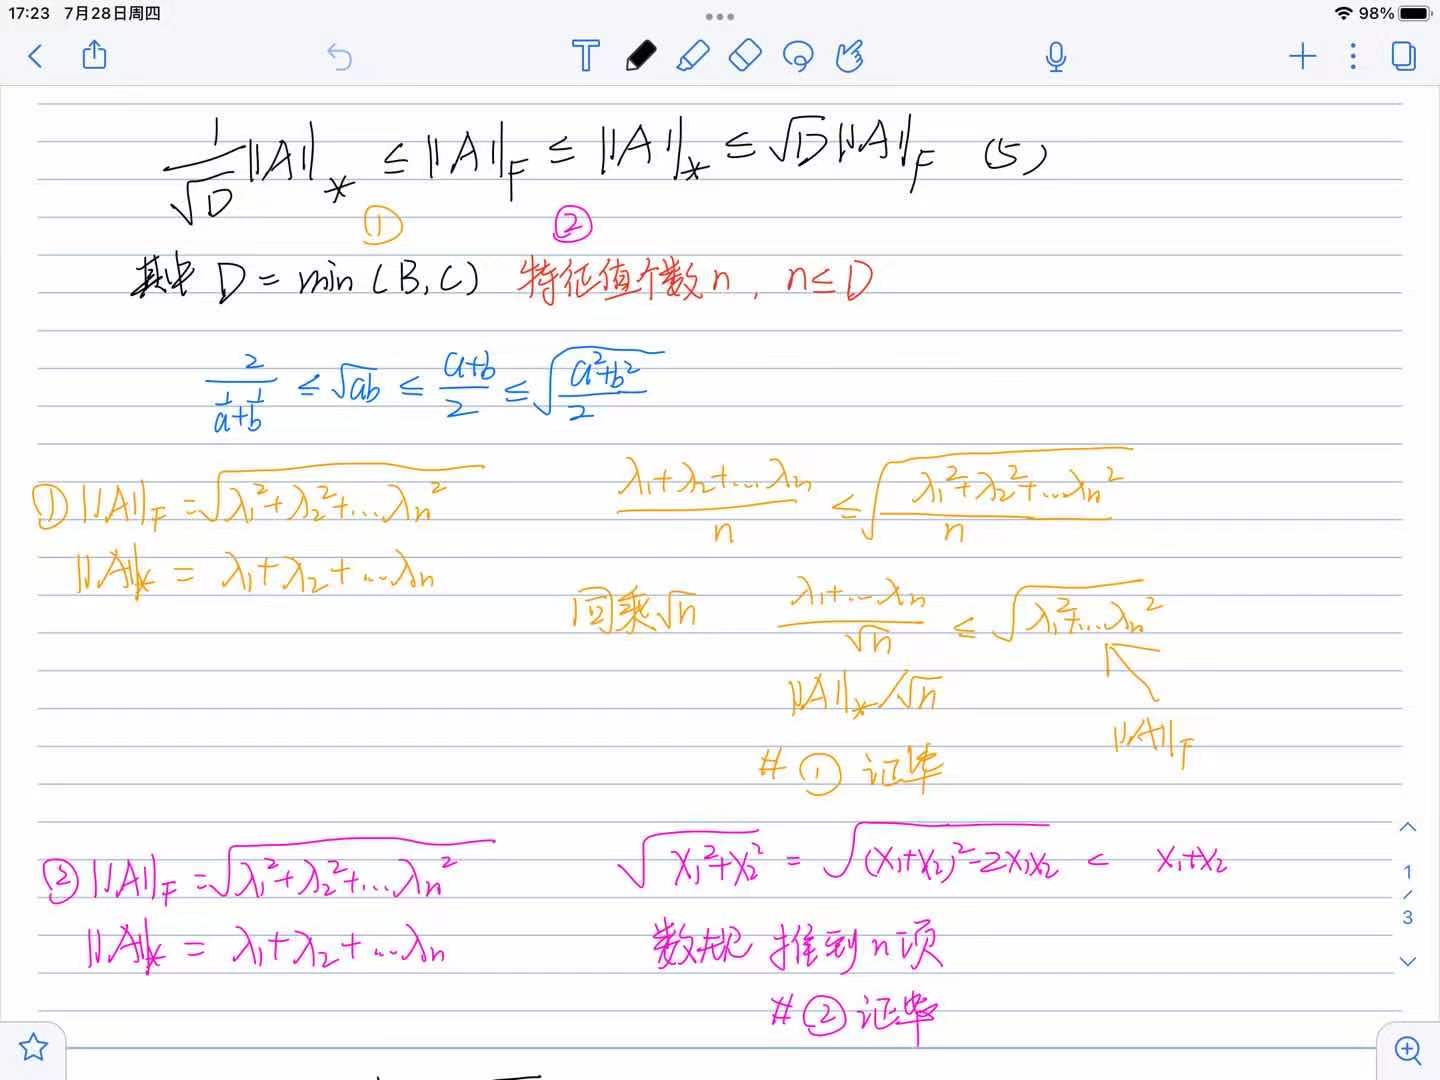 17:23 7月28日周四
98%
1/√D ||A||* ≤ ||A||F ≤ ||A||* ≤ √D ||A||F (5)
① ②
其中 D = min (B, C) 特征值个数n, n≤D
2/(1/a+1/b) ≤ √ab ≤ (a+b)/2 ≤ √((a²+b²)/2)
① ||A||F = √(λ1²+λ2²+...λn²) (λ1+λ2+...λn)/n ≤ √((λ1²+λ2²+...λn²)/n)
||A||* = λ1+λ2+...λn
同乘√n (λ1+...λn)/√n ≤ √(λ1²+...λn²)
||A||*/√n
||A||F
# ① 证毕
② ||A||F = √(λ1²+λ2²+...λn²) √(x1²+x2²) = √((x1+x2)²-2x1x2) < x1+x2
||A||* = λ1+λ2+...λn 数规 推到n项
# ② 证毕
1/3